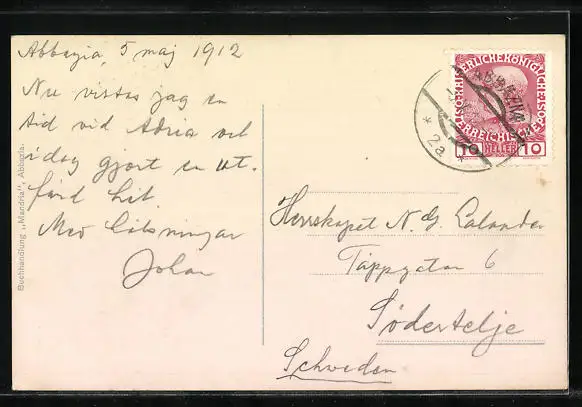 Abbazia, 5 maj 1912
Nu vistas jag en
tid vid Adria och
i dag gjort en ut-
färd hit.
Med hälsningar
Johan
Buchhandlung „Mandria", Abbazia.
KAISERLICHE KÖNIGLICHE ÖSTERREICHISCHE POST
10 HELLER 10
ABBAZIA
* 2a
Herrskapet N. G. Calander
Täppgatan 6
Södertelje
Schweden